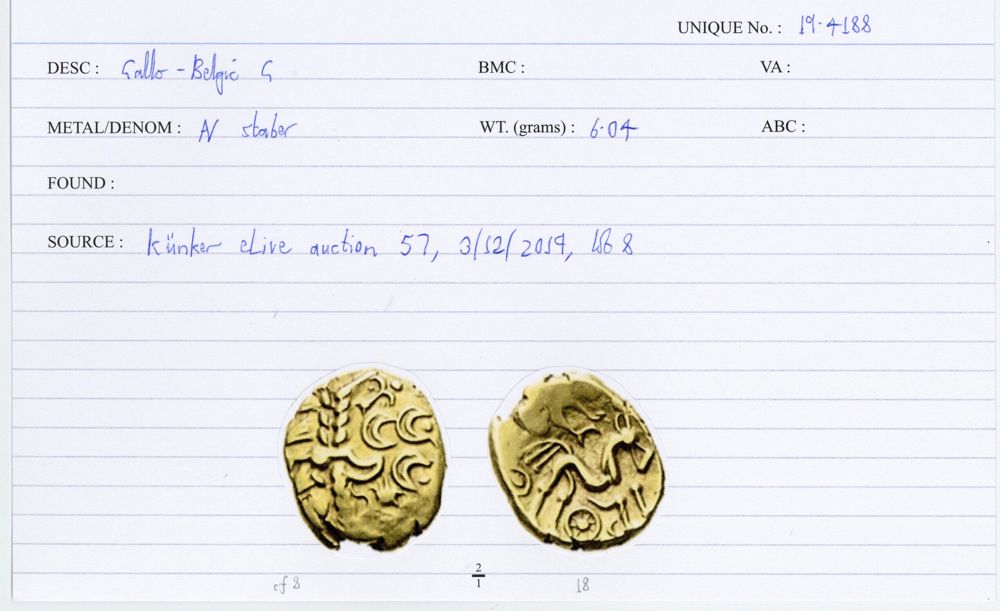 UNIQUE No. : 19.4188
DESC : Gallo-Belgic G BMC : VA :
METAL/DENOM : N stater WT. (grams) : 6.04 ABC :
FOUND :
SOURCE : Künker eLive auction 57, 3/12/2019, lot 8
cf 8 2/1 18